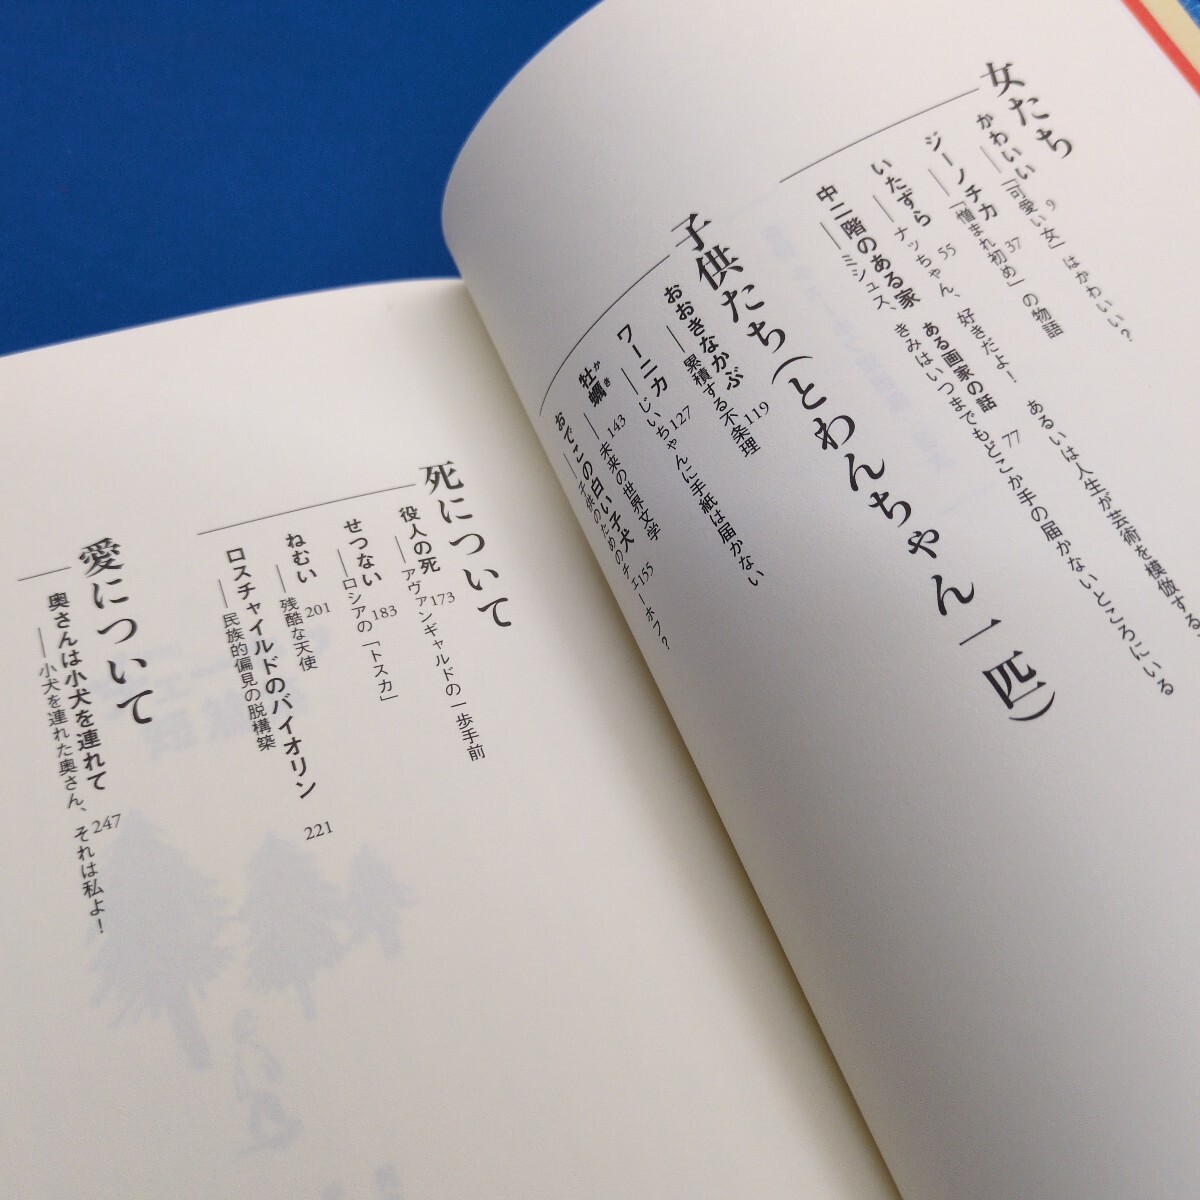 女たち
かわいい 9
――「可愛い女」はかわいい?
ジーノチカ 37
――「憎まれ初め」の物語
いたずら 55
――ナッちゃん、好きだよ! あるいは人生が芸術を模倣する
中二階のある家 ある画家の話 77
――ミシュス、きみはいつまでもどこか手の届かないところにいる
子供たち(とわんちゃん一匹)
おおきなかぶ 119
――累積する不条理
ワーニカ 127
――じいちゃんに手紙は届かない
牡蠣 かき 143
――未来の世界文学
おでこの白い子犬 155
――子供のためのチェーホフ?
死について
役人の死 173
――アヴァンギャルドの一歩手前
せつない 183
――ロシアの「トスカ」
ねむい 201
――残酷な天使
ロスチャイルドのバイオリン 221
――民族的偏見の脱構築
愛について
奥さんは小犬を連れて 247
――小犬を連れた奥さん、それは私よ!